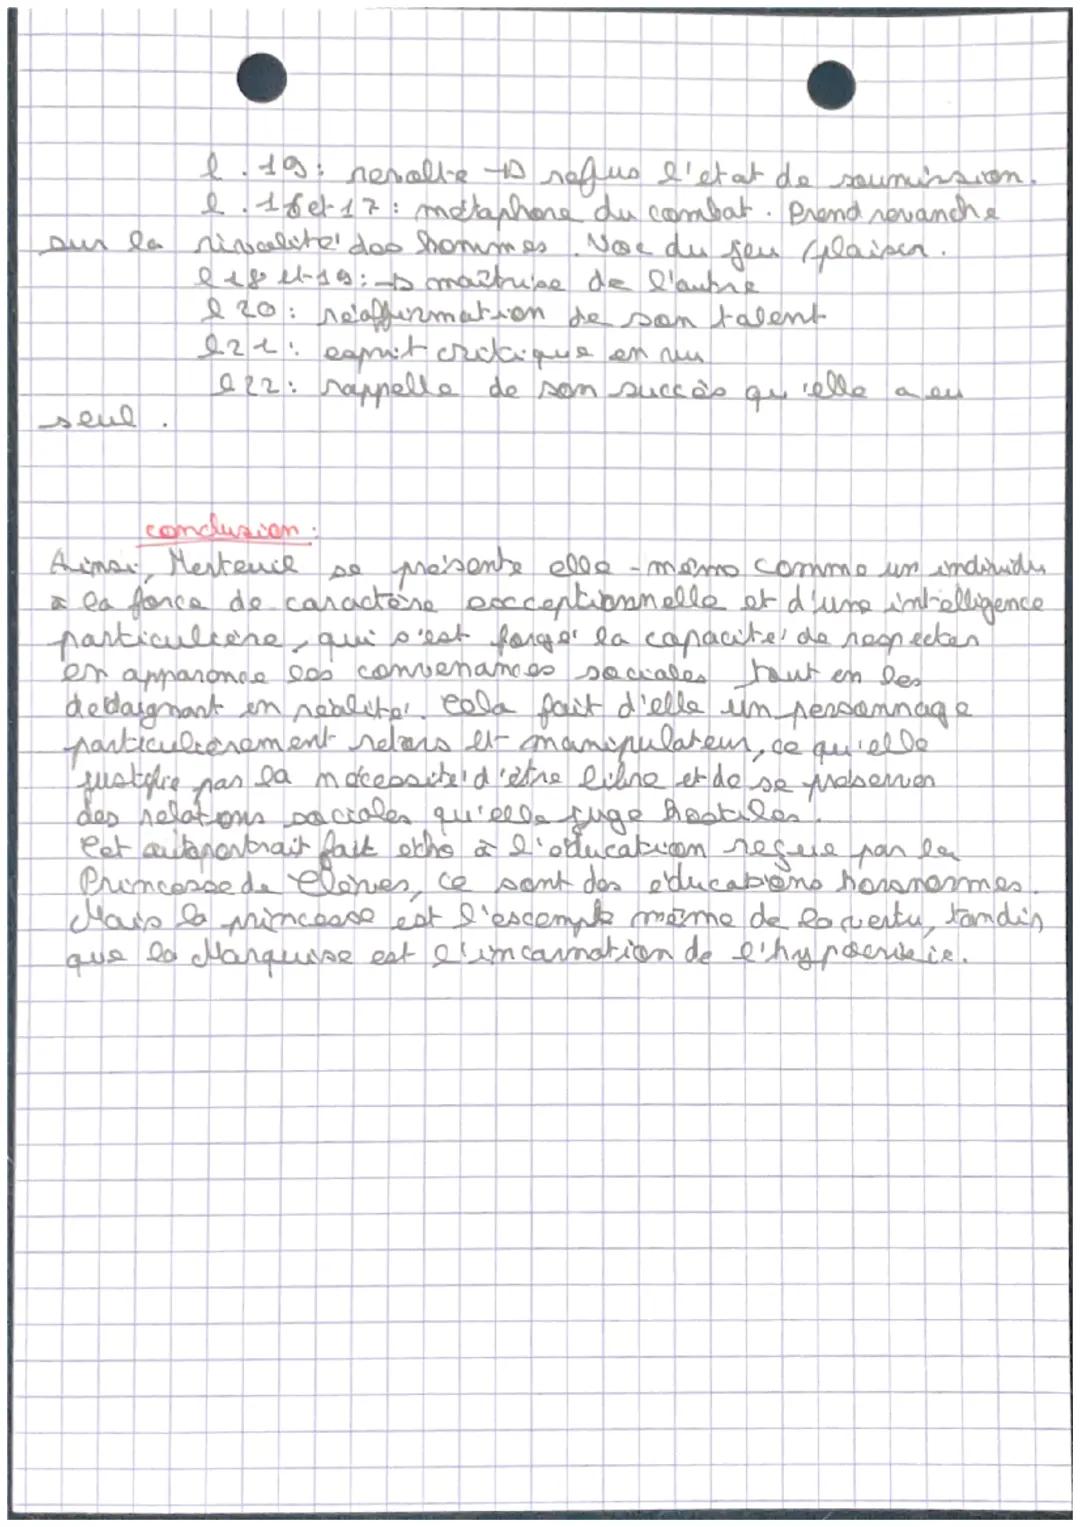 l. 19: revolte → refus l'état de soumission.
l. 16 et 17: métaphore du combat. Prend revanche
sur la rivalité des hommes. Voc du jeu/plaisir.
l 18 et 19: → maîtrise de l'autre
l 20: réaffirmation de son talent
l 21: esprit critique en
l 22: rappelle de son succès qu'elle a eu
seul.
conclusion:
Ainsi, Merteuil se présente elle-même comme un individu
à la force de caractère exceptionnelle et d'une intelligence
particulière, qui s'est forgé la capacité de respecter
en apparence les convenances sociales tout en les
dédaignant en réalité. Cela fait d'elle un personnage
particulièrement retors et manipulateur, ce qu'elle
justifie par la nécessité d'être libre et de se préserver
des relations sociales qu'elle juge hostiles.
Cet autoportrait fait echo à l'éducation reçue par la
Princesse de Clèves, ce sont des éducations horsnormes.
Mais la princesse est l'exemple même de la vertu, tandis
que la Marquise est l'incarnation de l'hypocrisie.